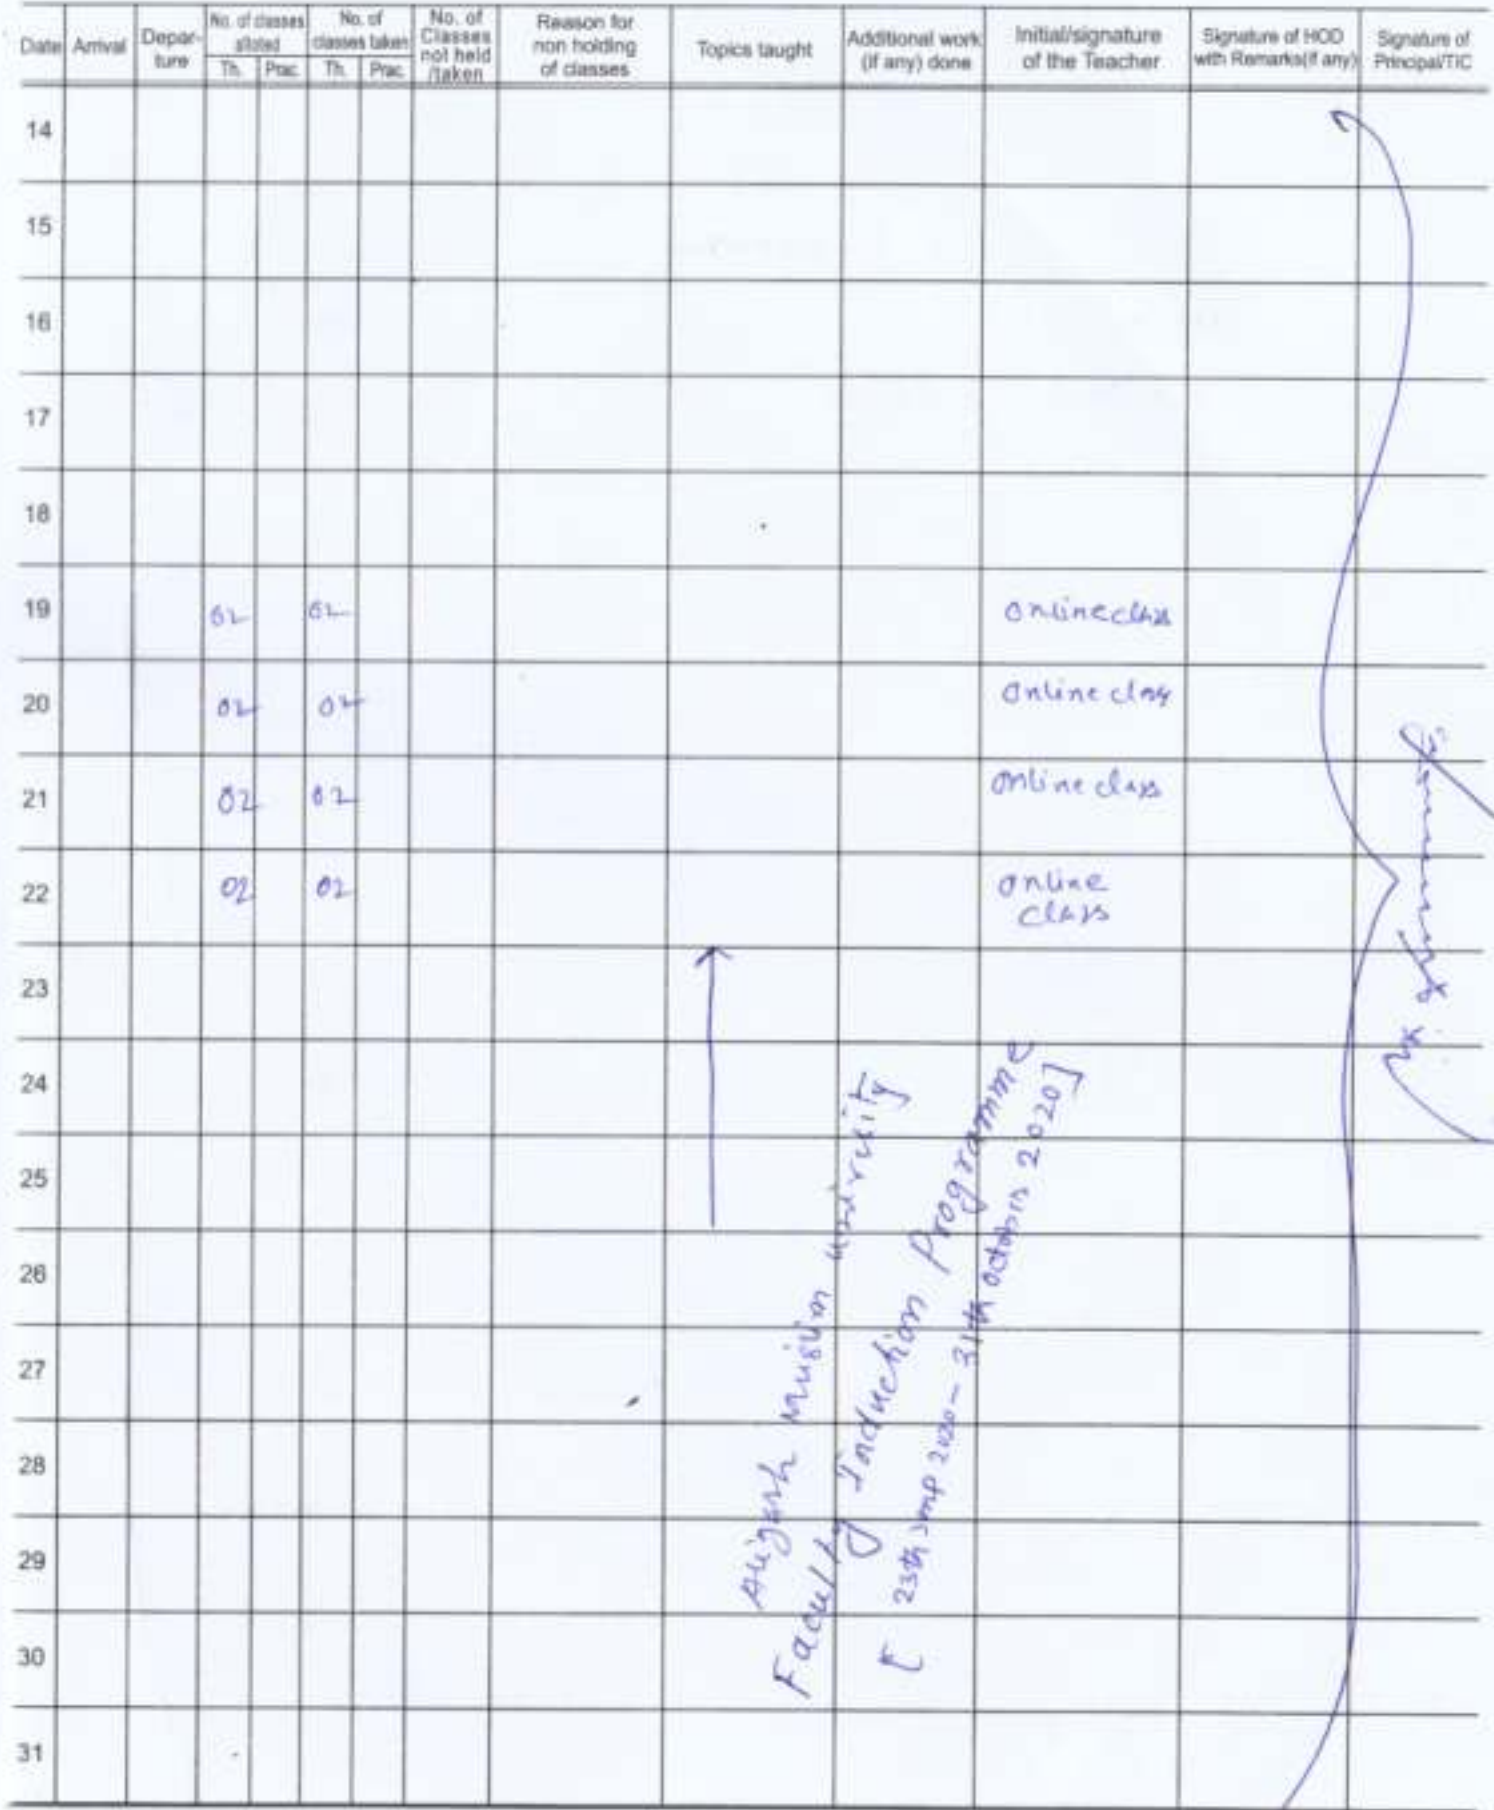 Date Arrival Depar-ture No. of classes alloted Th. Prac. No. of classes taken Th. Prac. No. of Classes not held /taken Reason for non holding of classes Topics taught Additional work (if any) done Initial/signature of the Teacher Signature of HOD with Remarks(if any) Signature of Principal/TIC
14
15
16
17
18
19 02 02 online class
20 02 02 online class
21 02 02 online class
22 02 02 online
class
23
24
25
26
27
28
29
30
31
Aligarh Muslim University
Faculty Induction Programme
[ 2020 - 31th 2020]